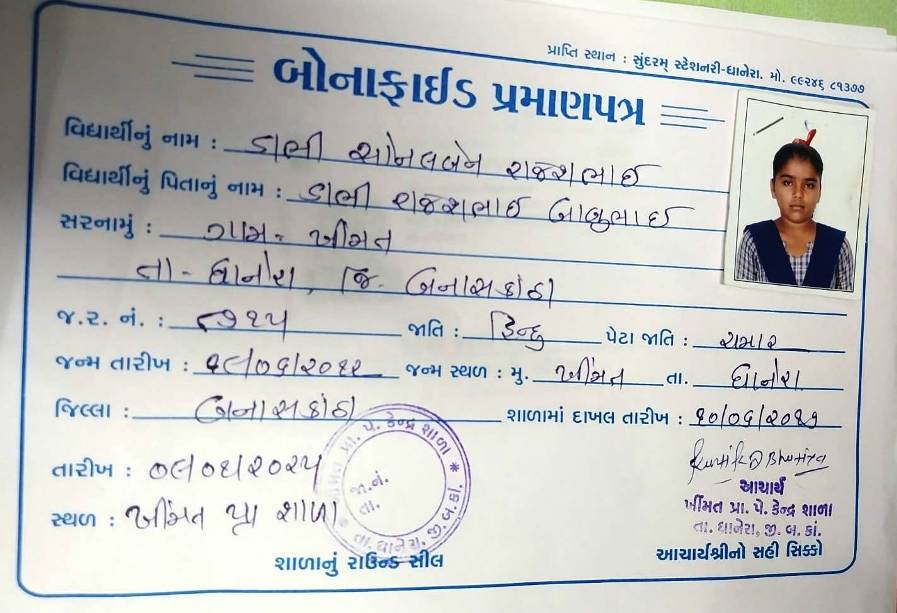 પ્રાપ્તિ સ્થાન : સુંદરમ્ સ્ટેશનરી-ધાનેરા. મો. ૯૯૨૪૬ ૮૧૩૭૭
બોનાફાઈડ પ્રમાણપત્ર
વિદ્યાર્થીનું નામ : ડાભી સોનલબેન રાજેશભાઈ
વિદ્યાર્થીનું પિતાનું નામ : ડાભી રાજેશભાઈ બાબુભાઈ
સરનામું : ગામ- ખીંમત
તા- ધાનેરા, જિ- બનાસકાંઠા
જ.ર. નં. : જાતિ : હિન્દુ પેટા જાતિ : ચમાર
જન્મ તારીખ : ૧૯/૦૬/૨૦૧૨ જન્મ સ્થળ : મુ. ખીંમત તા. ધાનેરા
જિલ્લા : બનાસકાંઠા શાળામાં દાખલ તારીખ : ૧૦/૦૬/૨૦૧૭
તારીખ : ૨૦૨૫
સ્થળ : ખીંમત પ્રા શાળા
પ્રા. પે. કેન્દ્ર શાળા
જા.નં.
તા.
તા. ધાનેરા, જી.બ.કાં.
આચાર્ય
ખીંમત પ્રા. પે. કેન્દ્ર શાળા
તા. ધાનેરા, જી. બ. કાં.
શાળાનું રાઉન્ડ સીલ
આચાર્યશ્રીનો સહી સિક્કો